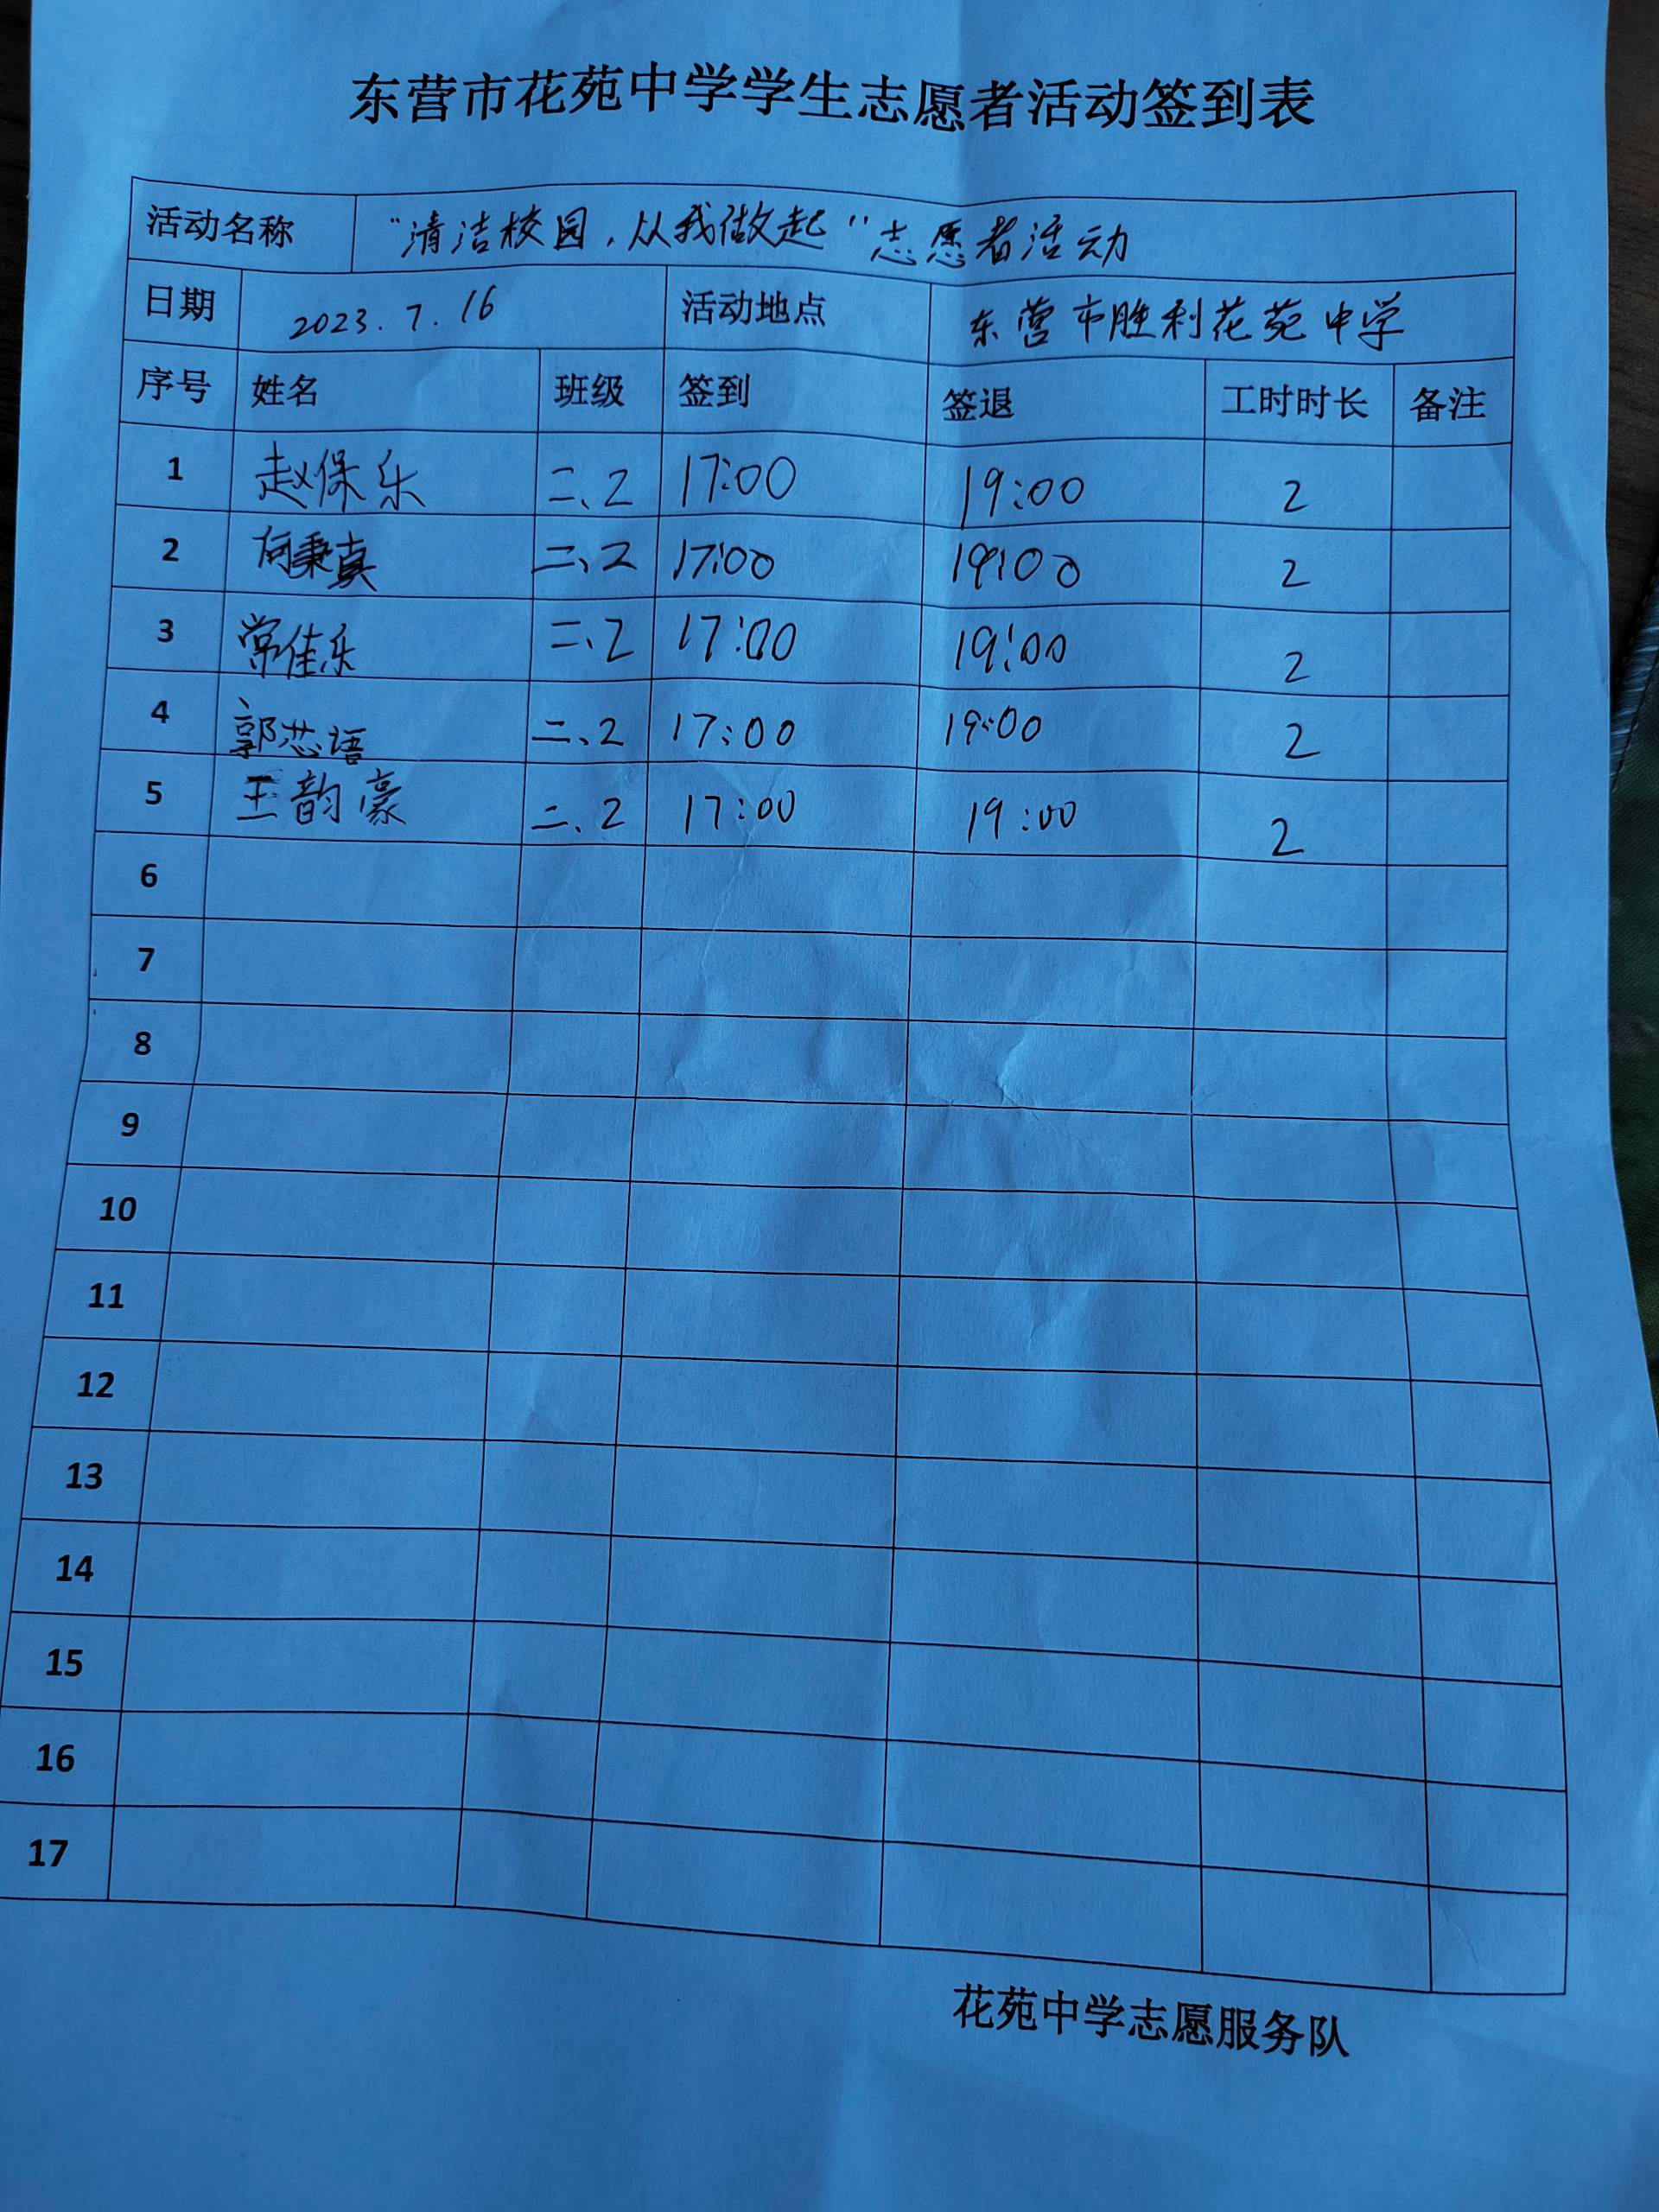 东营市花苑中学学生志愿者活动签到表
活动名称 "清洁校园,从我做起"志愿者活动
日期 2023.7.16 活动地点 东营市胜利花苑中学
序号 姓名 班级 签到 签退 工时时长 备注
1 赵保乐 二、2 17:00 19:00 2
2 何秉真 二、2 17:00 19:00 2
3 常佳乐 二、2 17:00 19:00 2
4 郭芯语 二、2 17:00 19:00 2
5 王韵豪 二、2 17:00 19:00 2
6
7
8
9
10
11
12
13
14
15
16
17
花苑中学志愿服务队